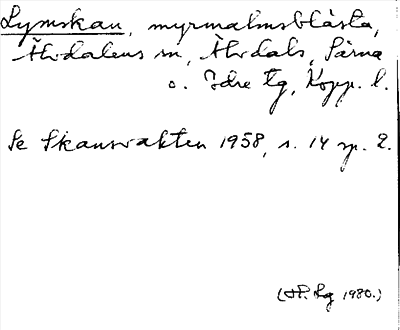 Lymskau, myrmalmsblåsta,
Älvdalens sn, Älvdals, Särna
o. Idre tg, Kopp. l.
Se Skansvakten 1958, s. 14 sp. 2.
(HP. Lg 1980.)